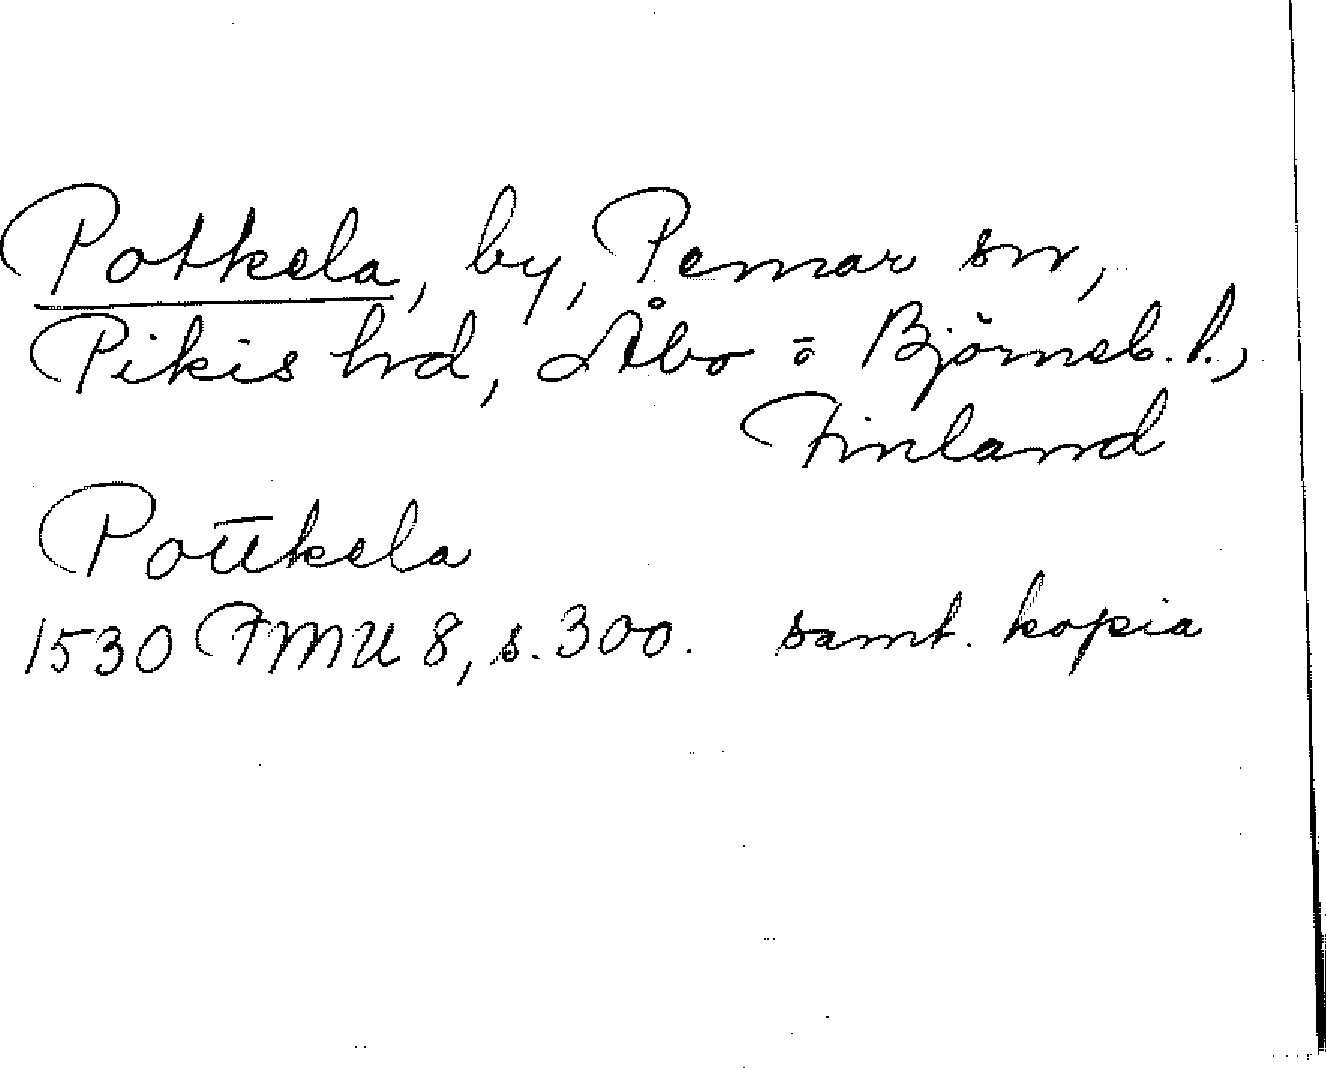 Potkela, by, Pemar sn,
Pikis hd, Åbo o Björneb. l.,
Finland
Pottkela
1530 FMU 8, s. 300. samt. kopia